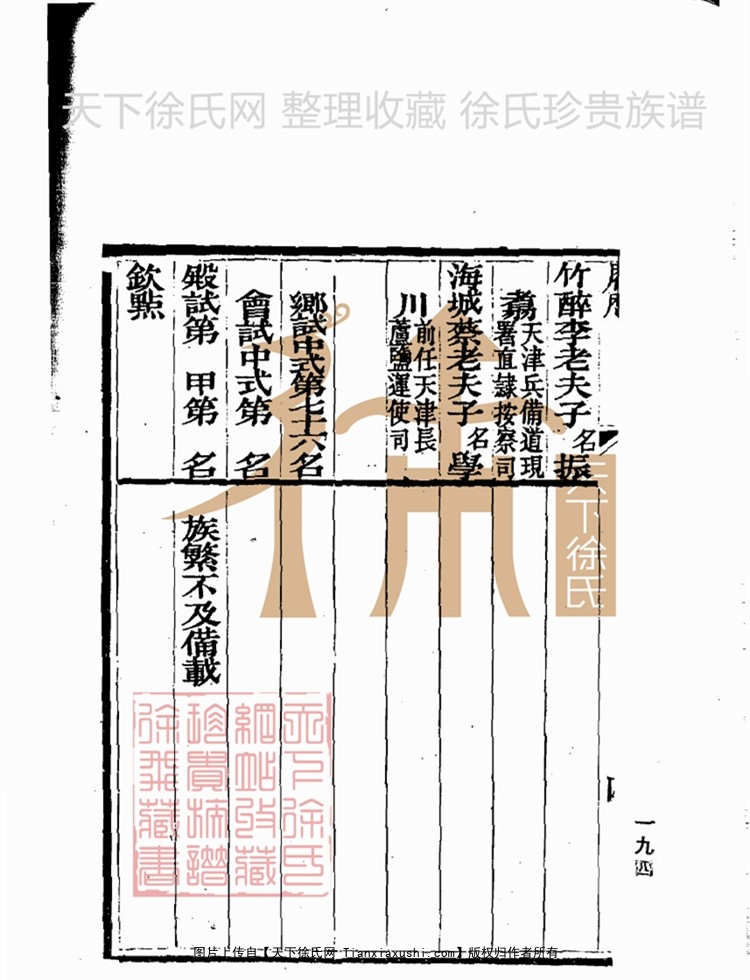 天下徐氏网 整理收藏 徐氏珍贵族谱
竹醉李老夫子名振
翥天津兵備道現
署直隸按察司
海城蔡老夫子名學
川前任天津長
蘆鹽運使司
鄉試中式第七十六名
會試中式第 名
殿試第 甲第 名
欽點
族繁不及備載
一九四
天下徐氏
天下徐氏
網站收藏
珍貴族譜
徐氏藏書
图片上传自【天下徐氏网 Tianxiaxushi.com】版权归作者所有